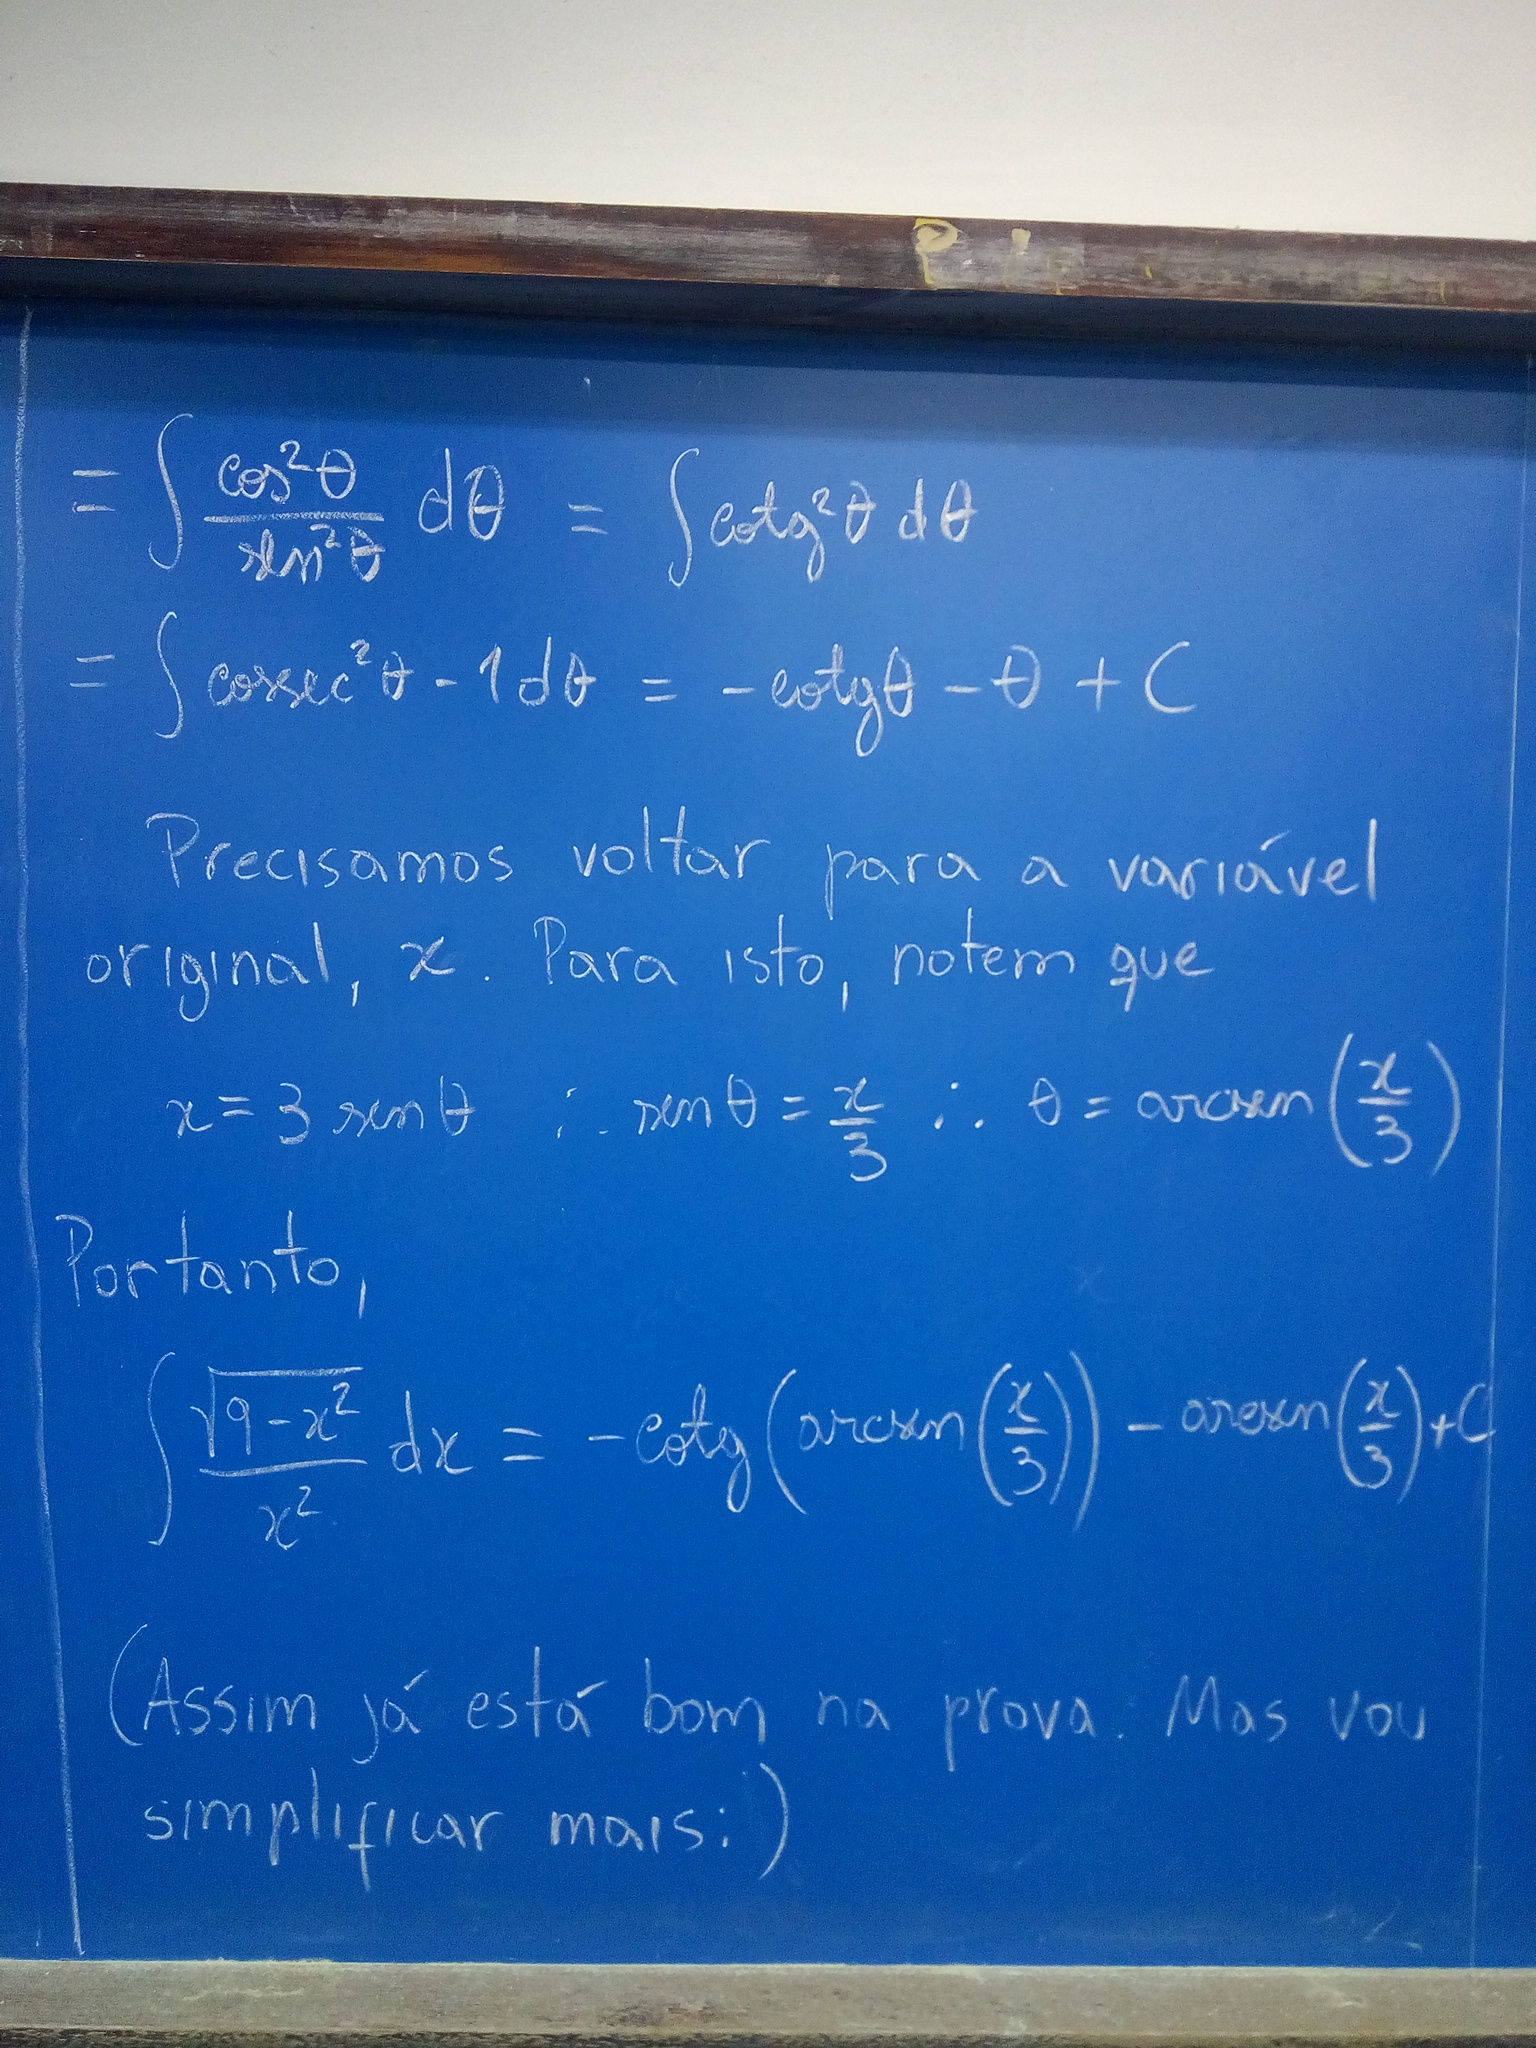 = ∫ cos²θ/sen²θ dθ = ∫ cotg²θ dθ
= ∫ cossec²θ - 1 dθ = -cotgθ - θ + C
Precisamos voltar para a variável
original, x. Para isto, notem que
x = 3 senθ ∴ senθ = x/3 ∴ θ = arcsen(x/3)
Portanto,
∫ √(9-x²)/x² dx = -cotg(arcsen(x/3)) - arcsen(x/3) + C
(Assim já está bom na prova. Mas vou
simplificar mais:)